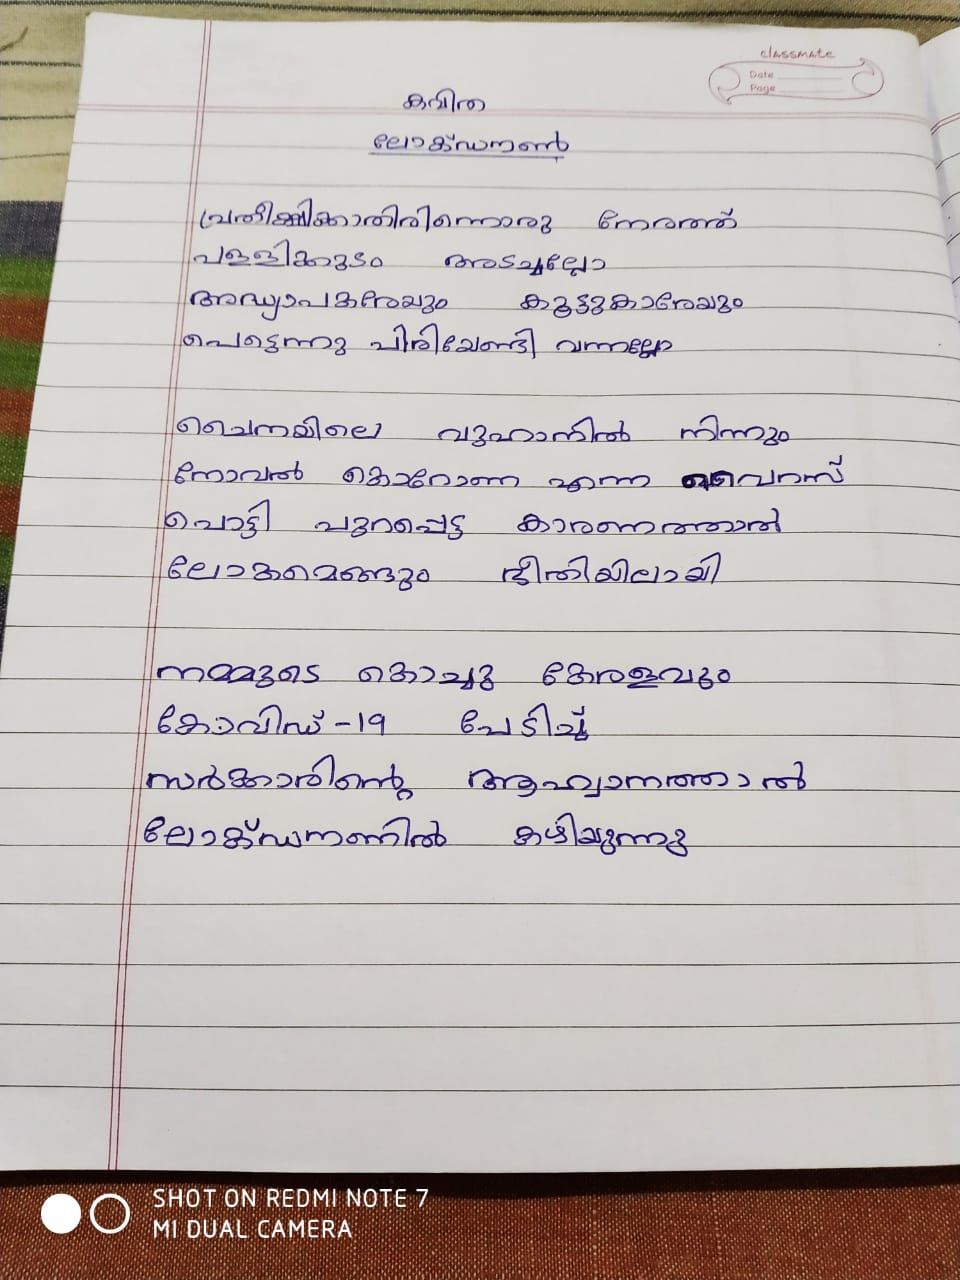 classmate
Date
Page
കവിത
ലോക്ഡൗൺ
പ്രതീക്ഷിക്കാതിരിന്നൊരു നേരത്ത്
പള്ളിക്കൂടം അടച്ചല്ലോ
അദ്ധ്യാപകരേയും കൂട്ടുകാരേയും
പെട്ടെന്നു പിരിയേണ്ടി വന്നല്ലോ
ചൈനയിലെ വുഹാനിൽ നിന്നും
നോവൽ കൊറോണ എന്ന വൈറസ്
പൊട്ടി പുറപ്പെട്ട കാരണത്താൽ
ലോകമെങ്ങും ഭീതിയിലായി
നമ്മുടെ കൊച്ചു കേരളവും
കോവിഡ്-19 പേടിച്ച്
സർക്കാരിൻ്റെ ആഹ്വാനത്താൽ
ലോക്ഡൗണിൽ കഴിയുന്നു
SHOT ON REDMI NOTE 7
MI DUAL CAMERA